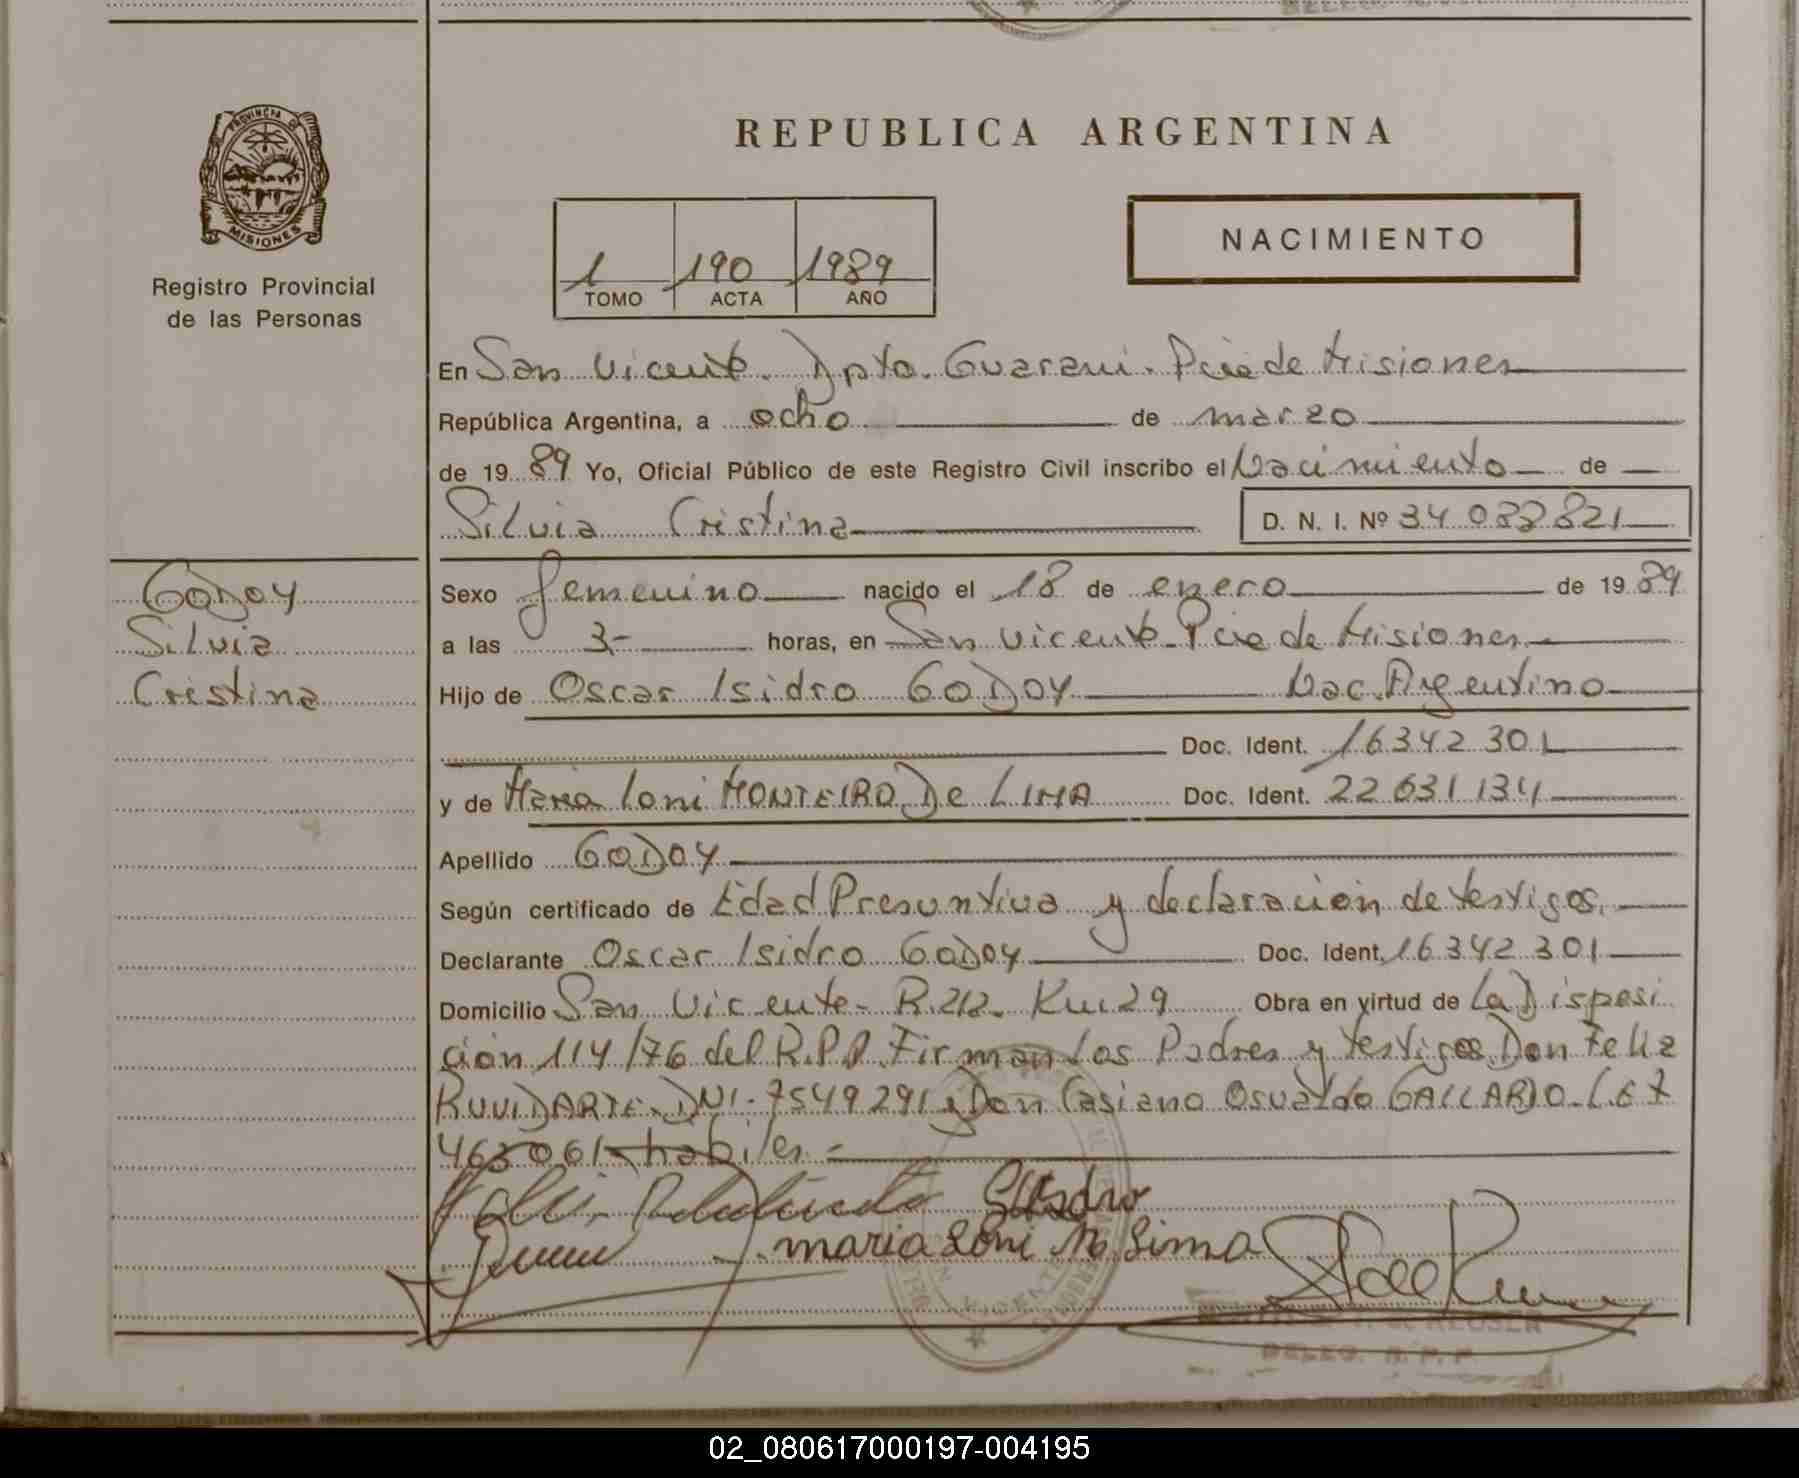 PROVINCIA DE
MISIONES
Registro Provincial
de las Personas
REPUBLICA ARGENTINA
1 190 1989
TOMO ACTA AÑO
NACIMIENTO
En San Vicente. Dpto. Guarani. Pcia de Misiones
República Argentina, a ocho de marzo
de 1989 Yo, Oficial Público de este Registro Civil inscribo el Nacimiento de
Silvia Cristina D. N. I. Nº 34 083 821
GODOY
Silvia
Cristina
Sexo femenino nacido el 18 de enero de 1989
a las 3- horas, en San Vicente - Pcia de Misiones
Hijo de Oscar Isidro GODOY Nac. Argentino
Doc. Ident. 16342 301
y de Maria Loni MONTEIRO De LIMA Doc. Ident. 22 631 134
Apellido GODOY
Según certificado de Edad Presuntiva y declaración de testigos.
Declarante Oscar Isidro GODOY Doc. Ident. 16 342 301
Domicilio San Vicente - R.212. Km 29 Obra en virtud de La Disposi
ción 114/76 del R.P.P. Firman los Padres y testigos Don Feliz
RUVIDARTE. DNI. 7549291 y Don Casiano Osvaldo GALLARDO - L.E 7
463061 - habiles =
maria Loni M. Lima
KLOSER
DELEG. R.P.P.
02_080617000197-004195